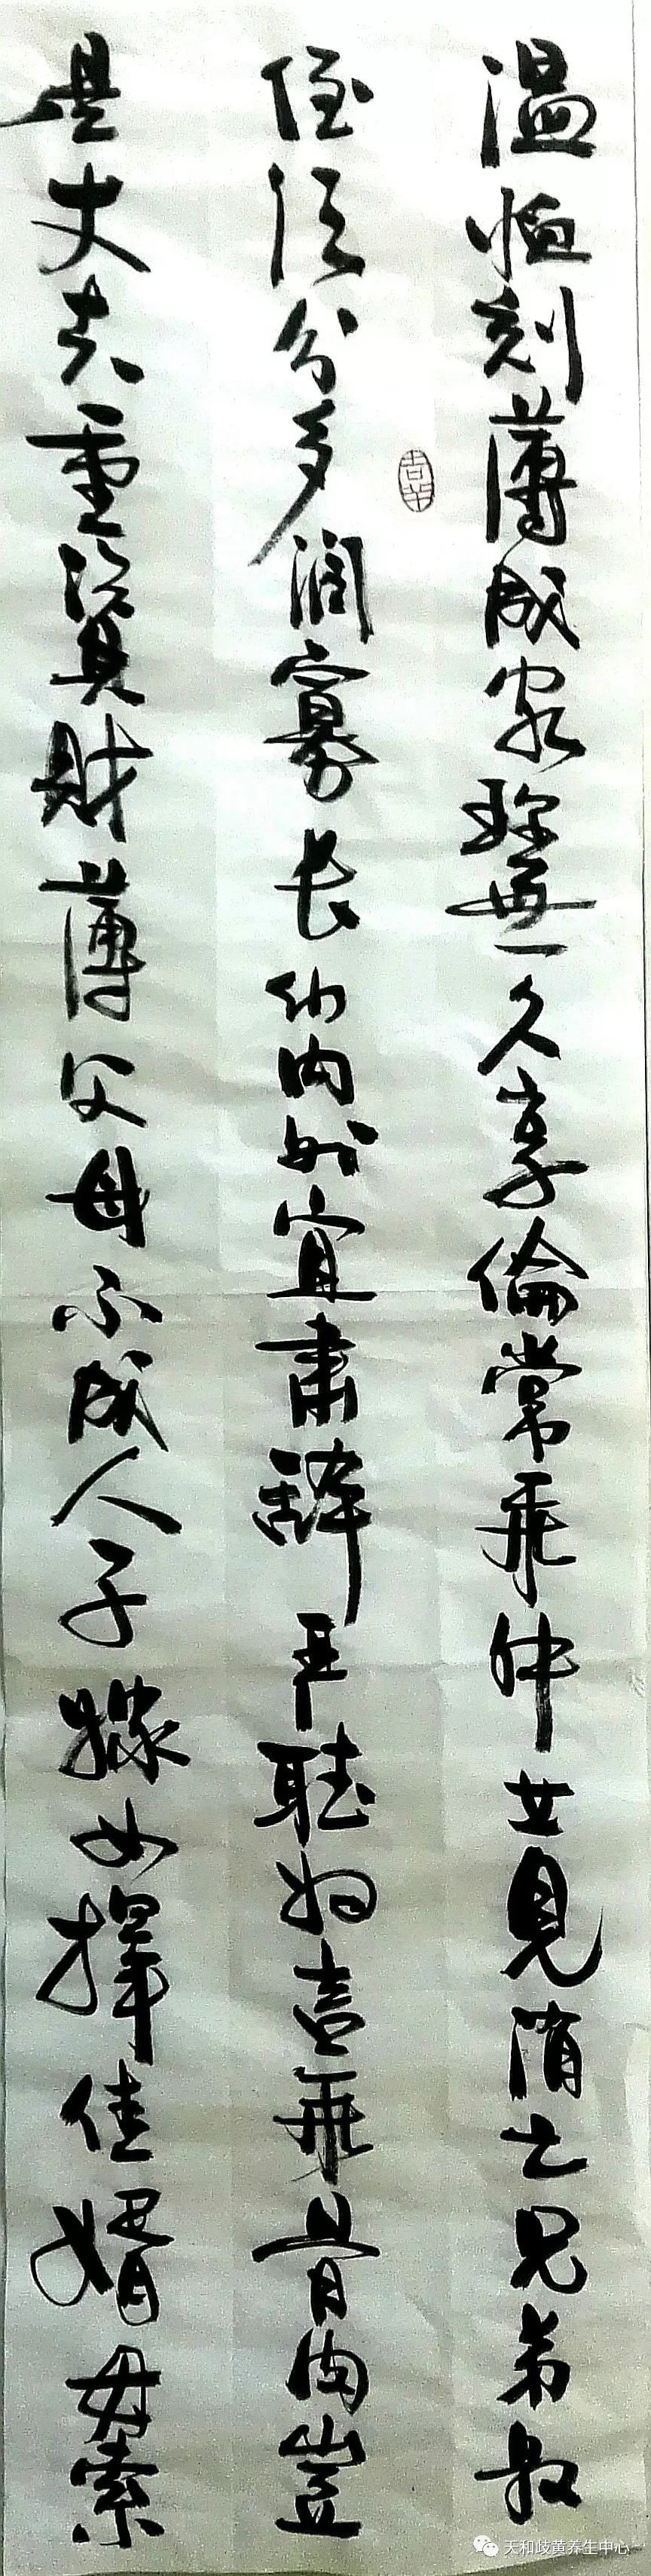 温恤刻薄成家理無久享倫常乖舛立見消亡兄弟叔
侄須分多潤寡长幼内外宜肅辞严聴妇言乖骨肉豈
是丈夫重資財薄父母不成人子嫁女擇佳婿毋索
天和歧黄养生中心